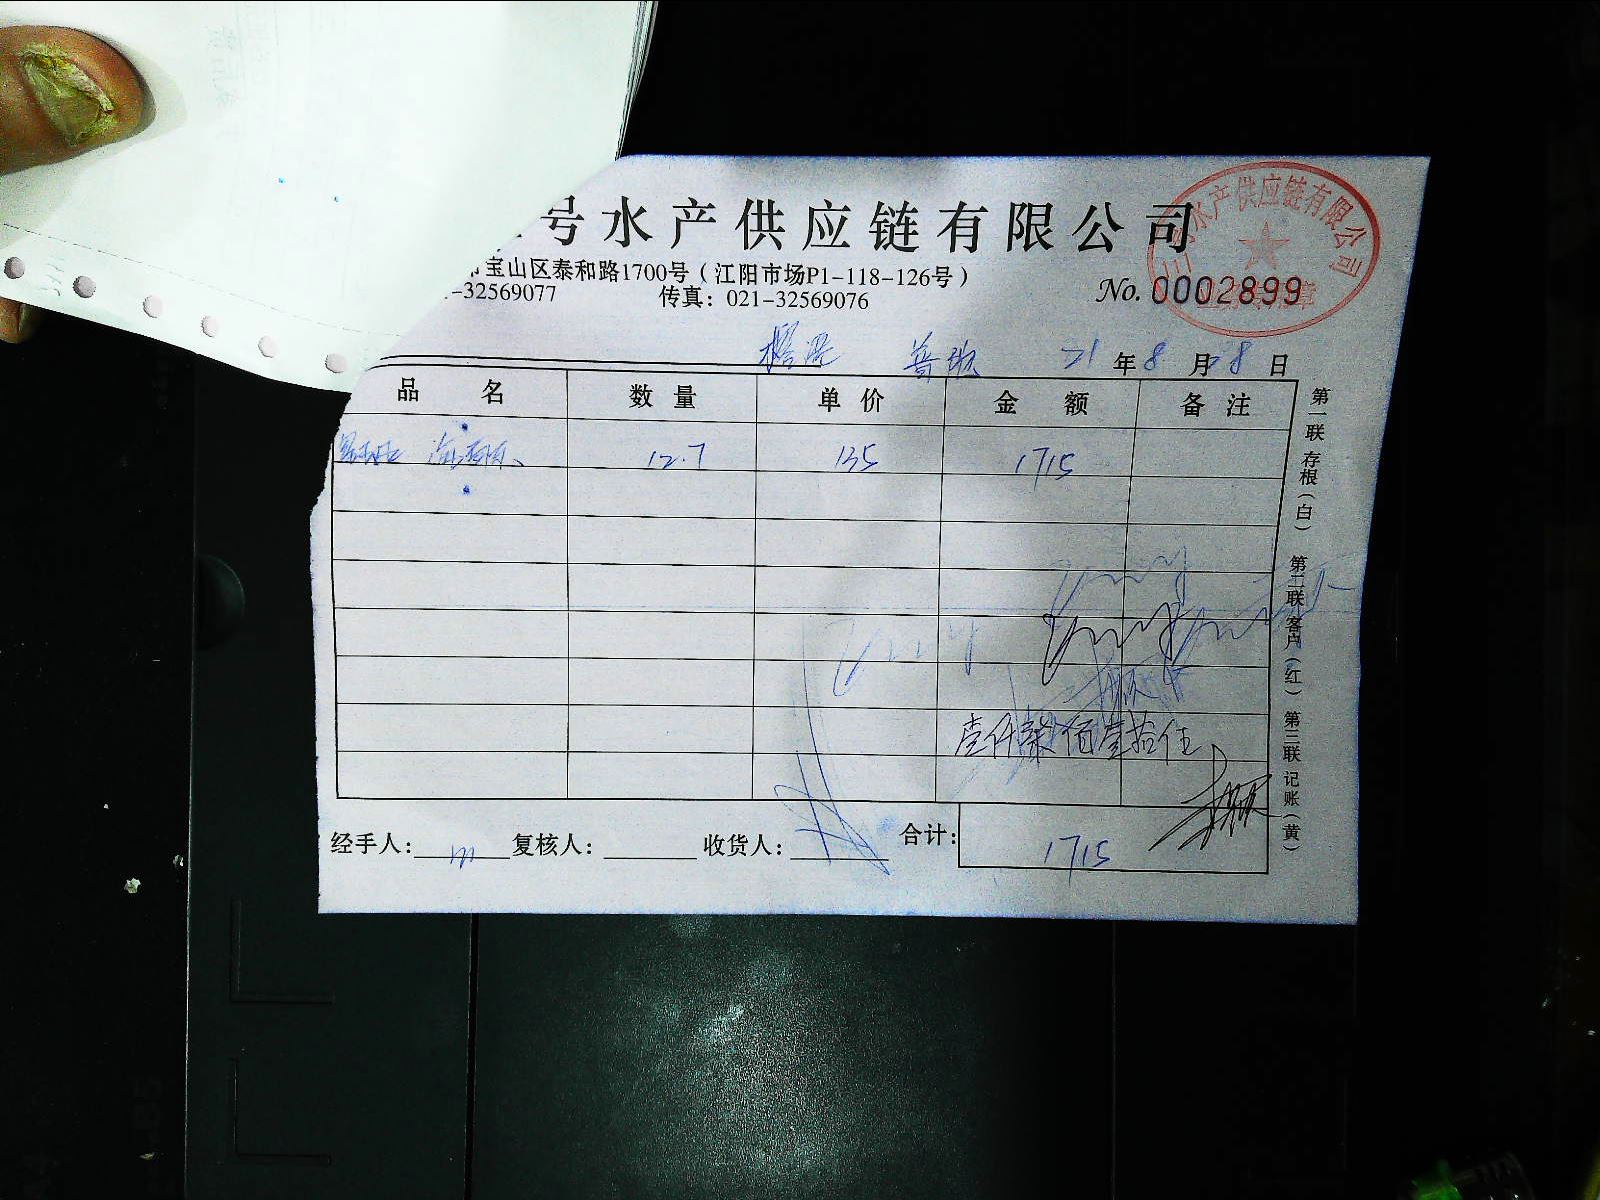 号水产供应链有限公司
水产供应链有限公司
宝山区泰和路1700号（江阳市场P1-118-126号）
-32569077 传真：021-32569076
No. 0002899
21年8月8日
品名 数量 单价 金额 备注
12.7 135 1715
壹仟柒佰壹拾伍
经手人： 复核人： 收货人： 合计： 1715
第一联 存根（白） 第二联 客户（红） 第三联 记账（黄）